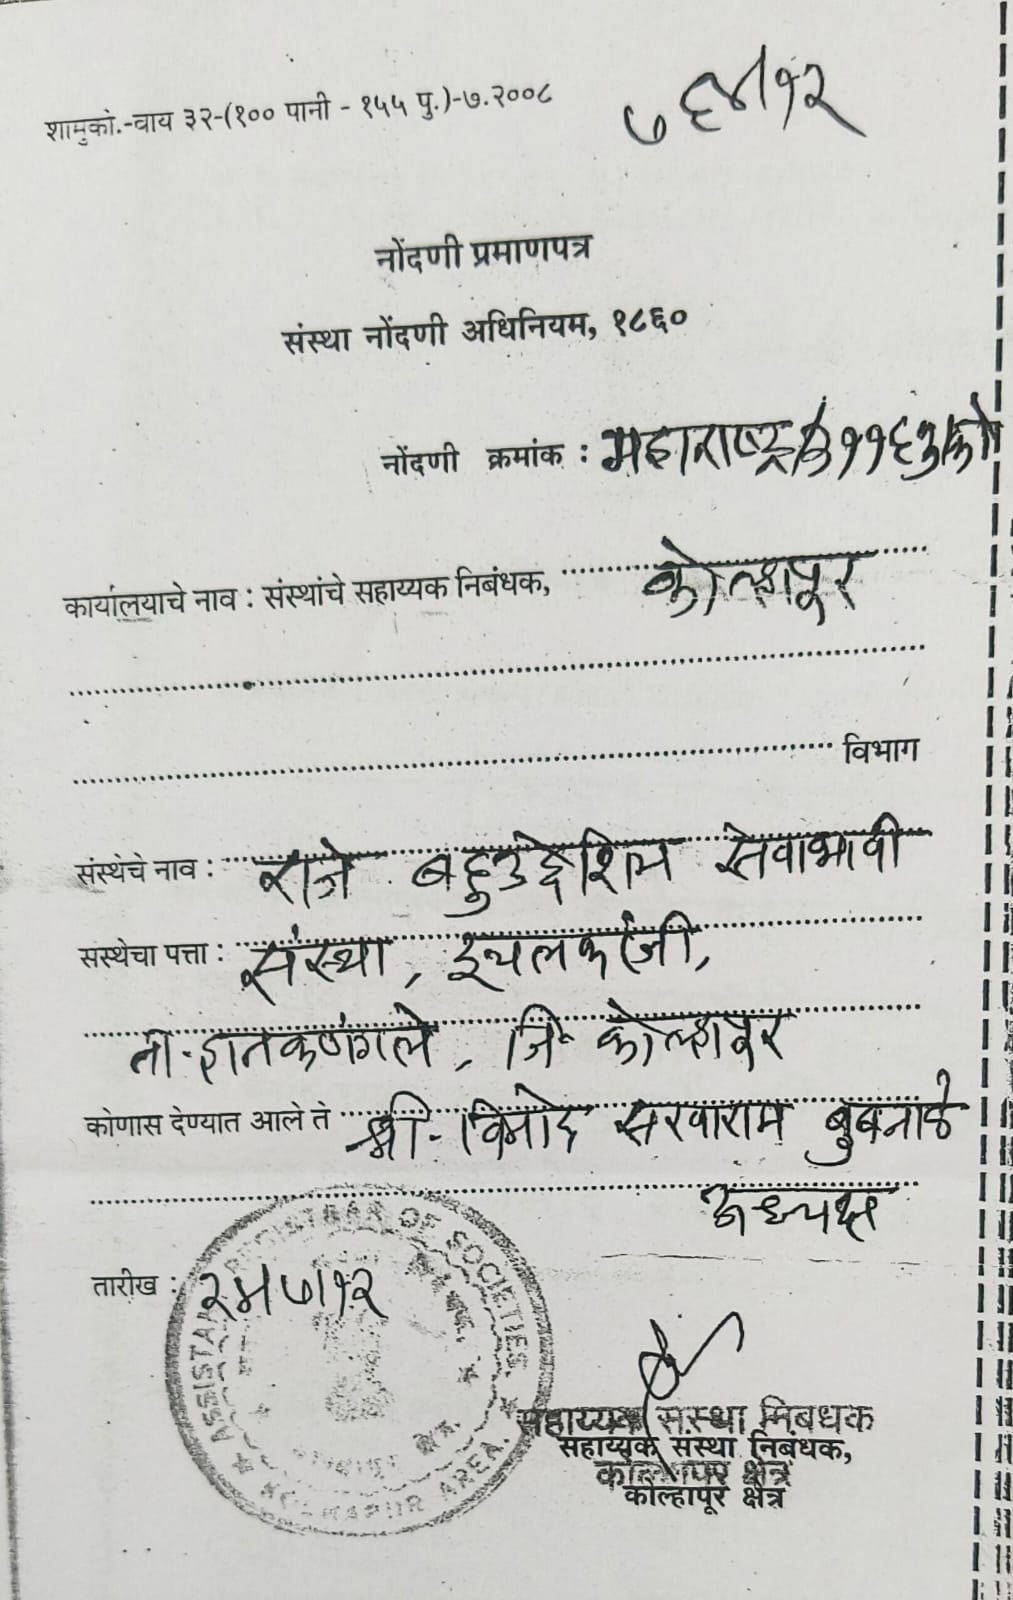 शामुकां.-वाय ३२-(१०० पानी - १५५ पु.)-७.२००८
नोंदणी प्रमाणपत्र
संस्था नोंदणी अधिनियम, १८६०
नोंदणी क्रमांक : महाराष्ट्र/
कार्यालयाचे नाव : संस्थांचे सहाय्यक निबंधक, कोल्हापूर
विभाग
संस्थेचे नाव : राजे बहुउद्देशिय सेवाभावी
संस्थेचा पत्ता : संस्था, इचलकरंजी,
ता-हातकणंगले, जि- कोल्हापूर
कोणास देण्यात आले ते श्री- विनोद सखाराम
अध्यक्ष
तारीख :
ASSISTANT REGISTRAR OF SOCIETIES
KOLHAPUR AREA.
सहाय्यक संस्था निबंधक
सहाय्यक संस्था निबंधक,
कोल्हापूर क्षेत्र
कोल्हापूर क्षेत्र